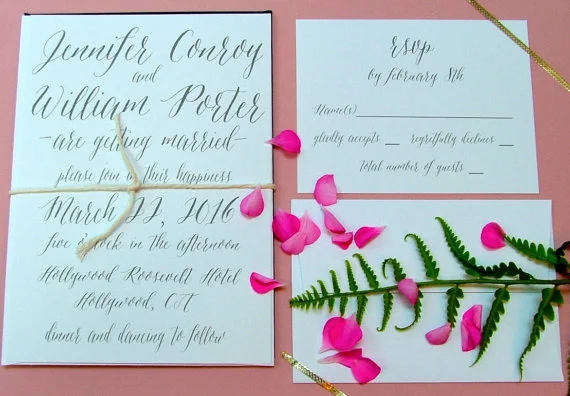 Jennifer Conroy
and
William Porter
-are getting married-
please join in their happiness
March 22, 2016
five o'clock in the afternoon
Hollywood Roosevelt Hotel
Hollywood, CA
dinner and dancing to follow
rsvp
by february 8th
Name(s)
gladly accepts __ regretfully declines __
total number of guests __